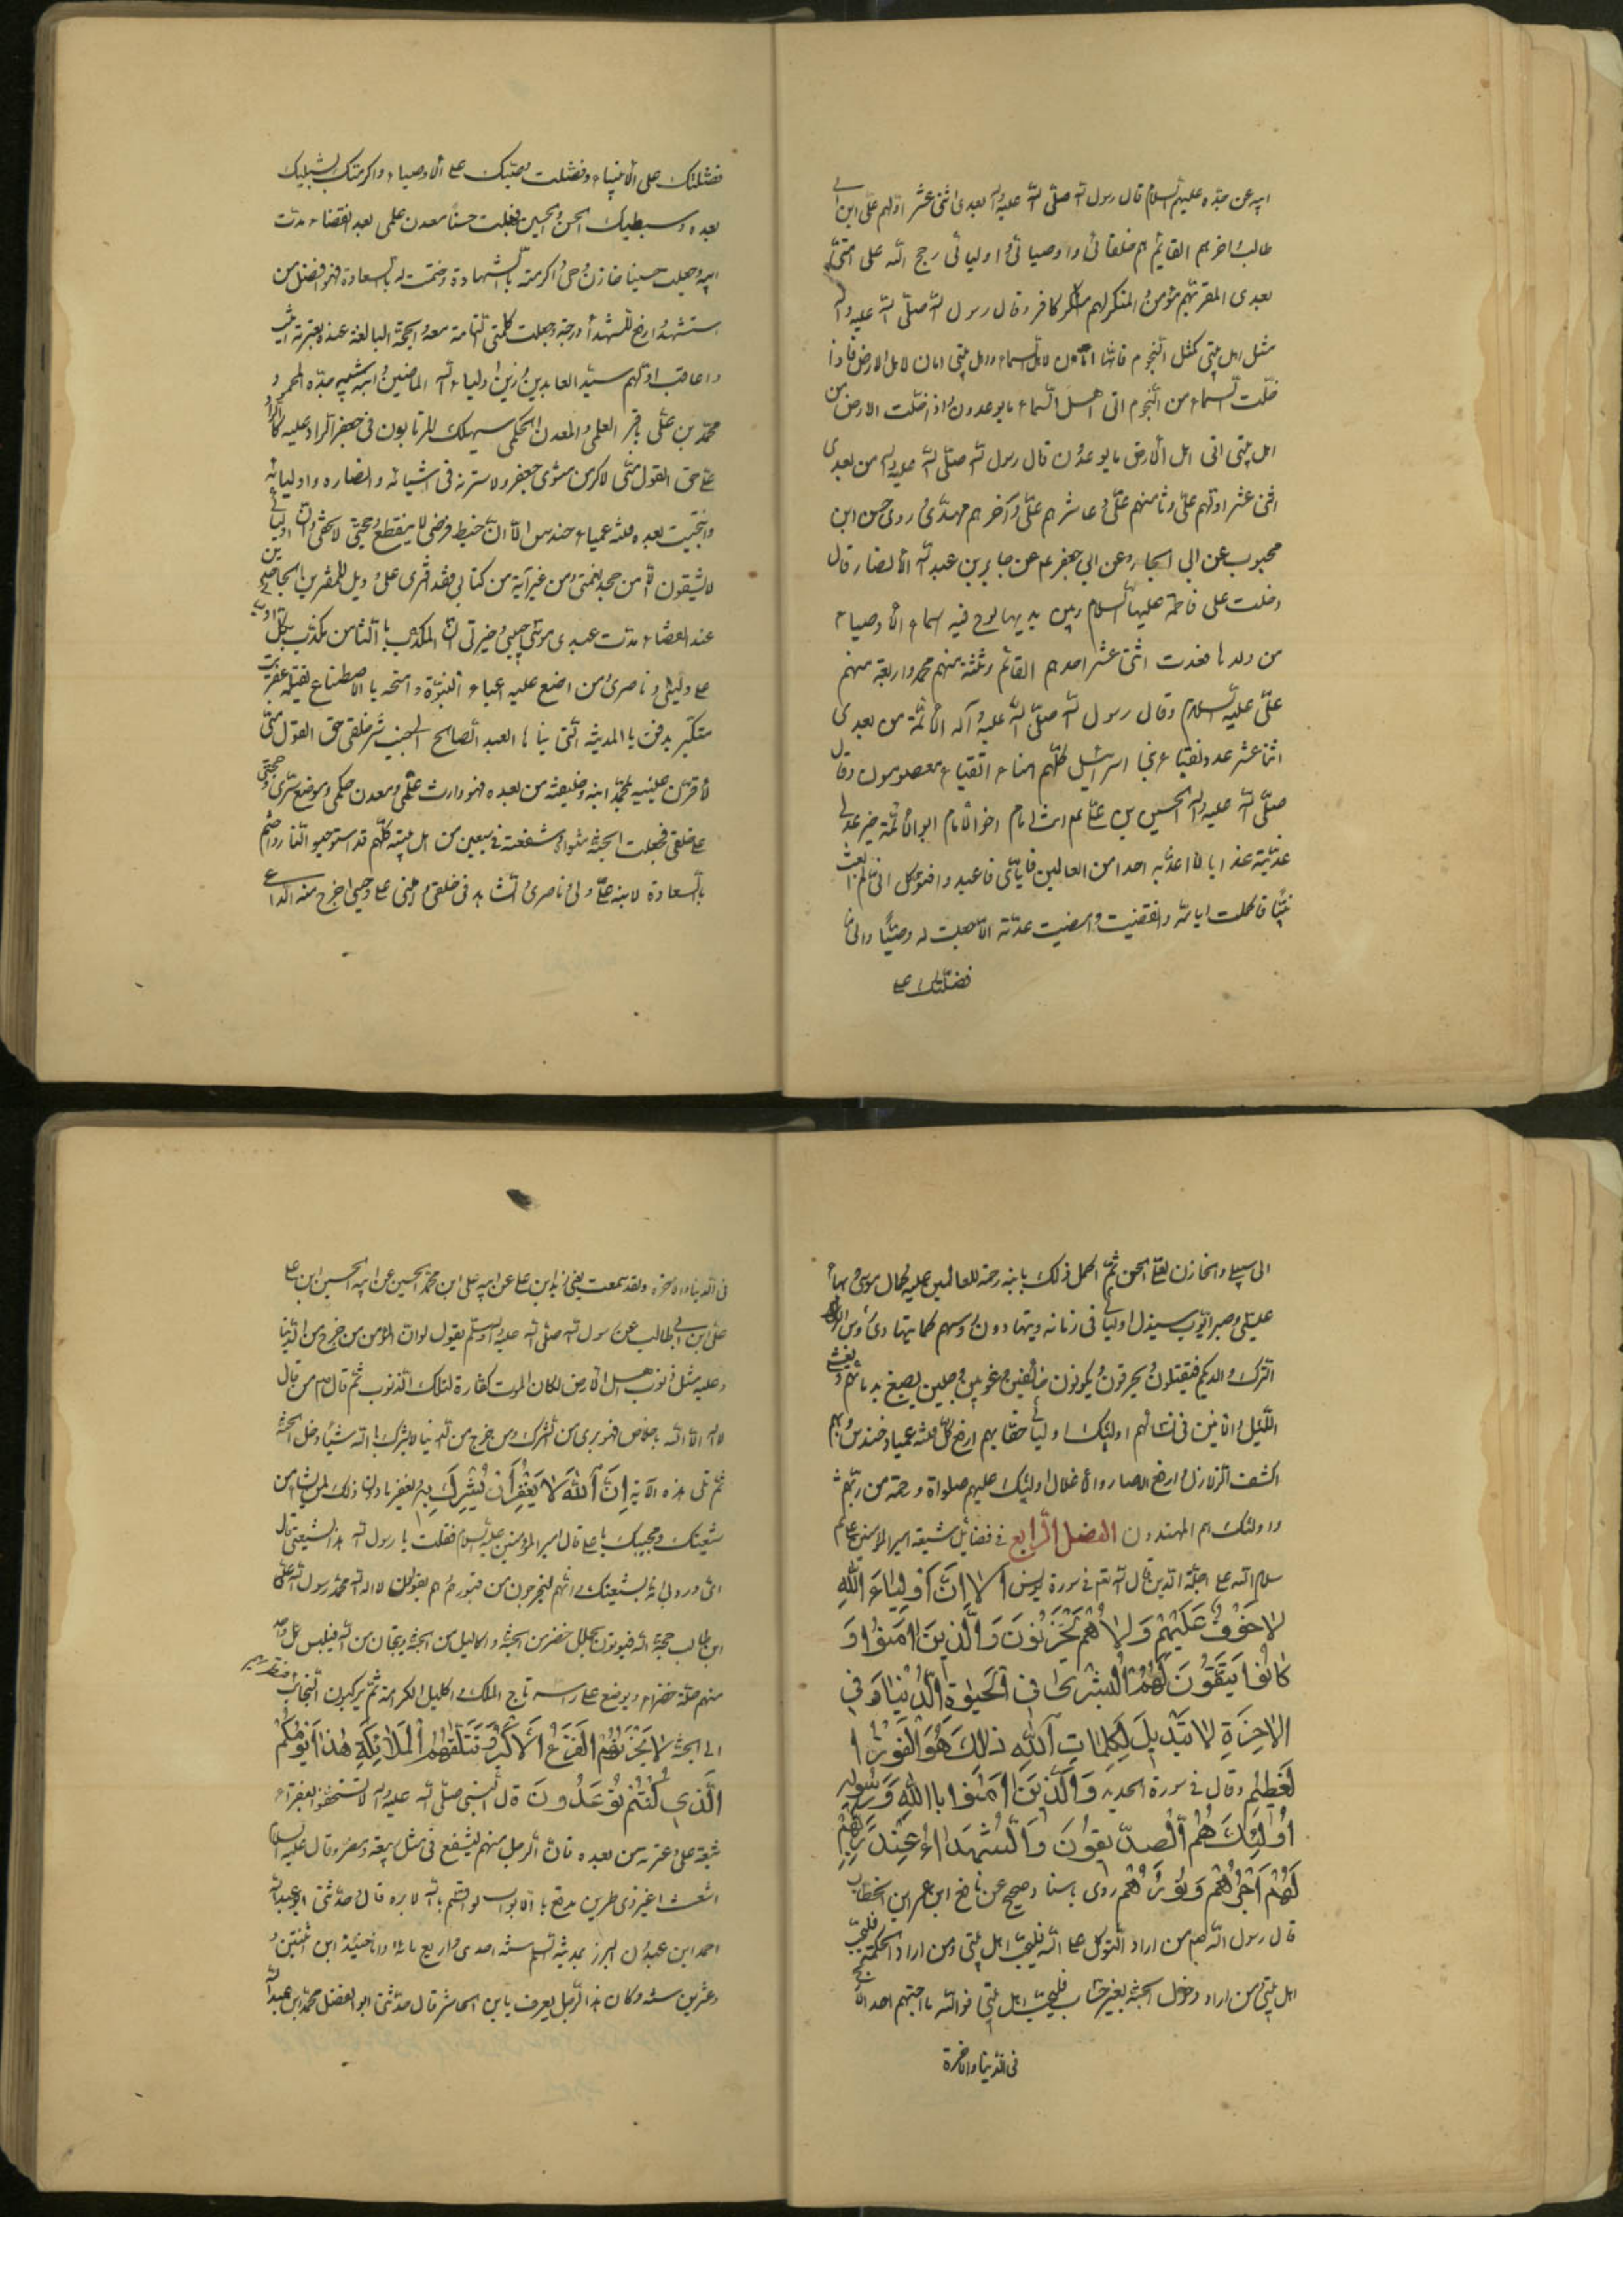 ابيه عن جده عليهم السلام قال رسول الله صلى الله عليه وآله بعدى اثنى عشر اولهم على ابن ابى
طالب واخرهم القايم هم خلفائى واوصيائى واوليائى وحجج الله على امتى
بعدى المقر بهم مؤمن والمنكر لهم كافر وقال رسول الله صلى الله عليه وآله
مثل اهل بيتى كمثل النجوم فانها امان لاهل السماء واهل بيتى امان لاهل الارض فاذا
خلت السماء من النجوم اتى اهل السماء ما يوعدون واذا خلت الارض من
اهل بيتى اتى اهل الارض ما يوعدون قال رسول الله صلى الله عليه وآله من بعدى
اثنى عشر اولهم على وثامنهم على وعاشرهم على وآخرهم مهدى روى حسن ابن
محبوب عن ابى الجارود عن ابى جعفر عم عن جابر بن عبد الله الانصار قال
دخلت على فاطمة عليها السلام وبين يديها لوح فيه اسماء الاوصياء
من ولدها فعدت اثنى عشر احدهم القائم وثلثة منهم محمد واربعة منهم
على عليه السلام وقال رسول الله صلى الله عليه وآله الائمة من بعدى
اثنا عشر عدد نقباء بنى اسرائيل كلهم امناء اتقياء معصومون وقال
صلى الله عليه وآله الحسين بن على عم امام اخو الامام ابو الائمة
عذبته عذابا لا اعذبه احدا من العالمين فاياى فاعبد و انى لم ابعث
نبيا فاكملت ايامه وانقضيت عدته الا جعلت له وصيا وانى
فضلتك على
فضلتك على الانبياء وفضلت وصيك على الاوصياء واكرمتك بشبليك
بعده وسبطيك الحسن والحسين فجعلت حسنا معدن علمى بعد انقضاء مدت
ابيه وجعلت حسينا خازن وحى واكرمته بالشهادة وختمت له بالسعادة فهو افضل من
استشهد وارفع الشهداء درجة وجعلت كلمتى التامة معه والحجة البالغة عنده بعترته اثيب
واعاقب اولهم سيد العابدين وزين اولياء الله الماضين وابنه شبيه جده المحمود
محمد بن على باقر العلمى والمعدن لحكمى سيهلك المرتابون فى جعفر الراد عليه كالراد
على حق القول منى لاكرمن مثوى جعفر ولاسرنه فى اشياعه وانصاره واوليائه
وانتجبت بعده فتنة عمياء حندس الا ان خيط فرضى لا ينقطع وحجتى لا تخفى وان اوليائى
لا يشقون الا من جحد نعمتى ومن غير آية من كتابى فقد افترى على وويل للمفترين الجاحدين
عند انقضاء مدت عبدى موسى حبيبى وخيرتى ان المكذب بالثامن مكذب بكل اوليائى
على وليى وناصرى ومن اضع عليه اعباء النبوة وامنحه بالاضطلاع يقتله عفريت
متكبر يدفن بالمدينة التى بناها العبد الصالح الى جنب شر خلقى حق القول منى
لاقرن عينيه بمحمد ابنه وخليفته من بعده فهو وارث علمى ومعدن حكمى وموضع سرى وحجتى
على خلقى فجعلت الجنة مثواه وشفعته فى سبعين من اهل بيته كلهم قد استوجبوا النار واختم
بالسعادة لابنه على ولى وناصرى والشاهد فى خلقى وامينى على وحيى اخرج منه الداعى
الى سبيلى والخازن لعلمى الحسن ثم اكمل ذلك بابنه رحمة للعالمين عليه كمال موسى وبهاء
عيسى وصبر ايوب سيذل اوليائى فى زمانه ويتهادون رؤسهم كما يتهادى رؤس
الترك والديلم فيقتلون ويحرقون ويكونون خائفين مرعوبين وجلين يصبغ بدمائهم
الليل والانين فى نسائهم اولئك اوليائى حقا بهم ارفع كل فتنة عمياء حندس وبهم
اكشف الزلازل وارفع الاصار والاغلال اولئك عليهم صلواة ورحمة من ربهم
واولئك هم المهتدون الفصل الرابع فى فضائل شيعة امير المؤمنين على عم
سلام الله على احبته الذين قال الله تع فى سورة يونس الا ان اولياء الله
لا خوف عليهم ولا هم يحزنون والذين امنوا و
كانوا يتقون لهم البشرى فى الحيوة الدنيا وفى
الاخرة لا تبديل لكلمات الله ذلك هو الفوز ا
لعظيم وقال فى سورة الحديد والذين امنوا باالله ورسوله
اولئك هم الصديقون والشهداء عند ربهم
لهم اجرهم ونورهم روى باسناد صحيح عن نافع ابن عمر ابن الخطاب
قال رسول الله صم من اراد التوكل على الله فليحب اهل بيتى ومن اراد الحكمة فليحب
اهل بيتى ومن اراد دخول الجنة بغير حساب فليحب اهل بيتى فوالله ما احبهم احد الا ربح
فى الدنيا والاخرة
فى الدنيا والاخرة ولقد سمعت يعنى زيد ابن على عن ابيه على ابن الحسين عن ابيه الحسين ابن على
على ابن ابى طالب عن رسول الله صلى الله عليه وآله وسلم يقول لو ان المؤمن خرج من الدنيا
وعليه مثل ذنوب اهل الارض لكان الموت كفارة لتلك الذنوب ثم قال صم من قال
لا اله الا الله باخلاص فهو برى من الشرك ومن خرج من الدنيا لا يشرك بالله شيئا دخل الجنة
ثم تلى هذه الآية ان الله لا يغفر ان يشرك به ويغفر ما دون ذلك لمن يشاء من
شيعتك ومحبيك يا على قال امير المؤمنين عليه السلام فقلت يا رسول الله هذا لشيعتى قال
اى وربى انه لشيعتك وانهم ليخرجون من قبورهم وهم يقولون لا اله الا الله محمد رسول الله على
ابن ابى طالب حجة الله فيؤتون بحلل خضر من الجنة واكاليل من الجنة ونجائب من الله فيلبس كل واحد
منهم حلة خضراء ويوضع على راسه تاج الملك واكليل الكرامة ثم يركبون النجائب فتطير بهم
الى الجنة لا يحزنهم الفزع الاكبر وتتلقاهم الملائكة هذا يومكم
الذى كنتم توعدون قال النبى صلى الله عليه وآله لا تستخفوا بفقراء
شيعة على وعترته من بعده فان الرجل منهم ليشفع فى مثل ربيعة ومضر وقال عليه السلام
اشعث اغبر ذى طمرين مدفع بالابواب لو اقسم بالله لابره قال حدثنى ابو عبد الله
احمد ابن عبدون البزز بمدينة السلم سنة احدى واربع مائة ابن اثنتين و
وعشرين سنة وكان هذا الرجل يعرف بابن الحاشر قال حدثنى ابو الفضل محمد ابن عبد الله